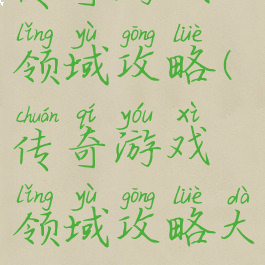 lǐng yù gōng lüè
领域攻略(
chuán qí yóu xì
传奇游戏
lǐng yù gōng lüè dà
领域攻略大